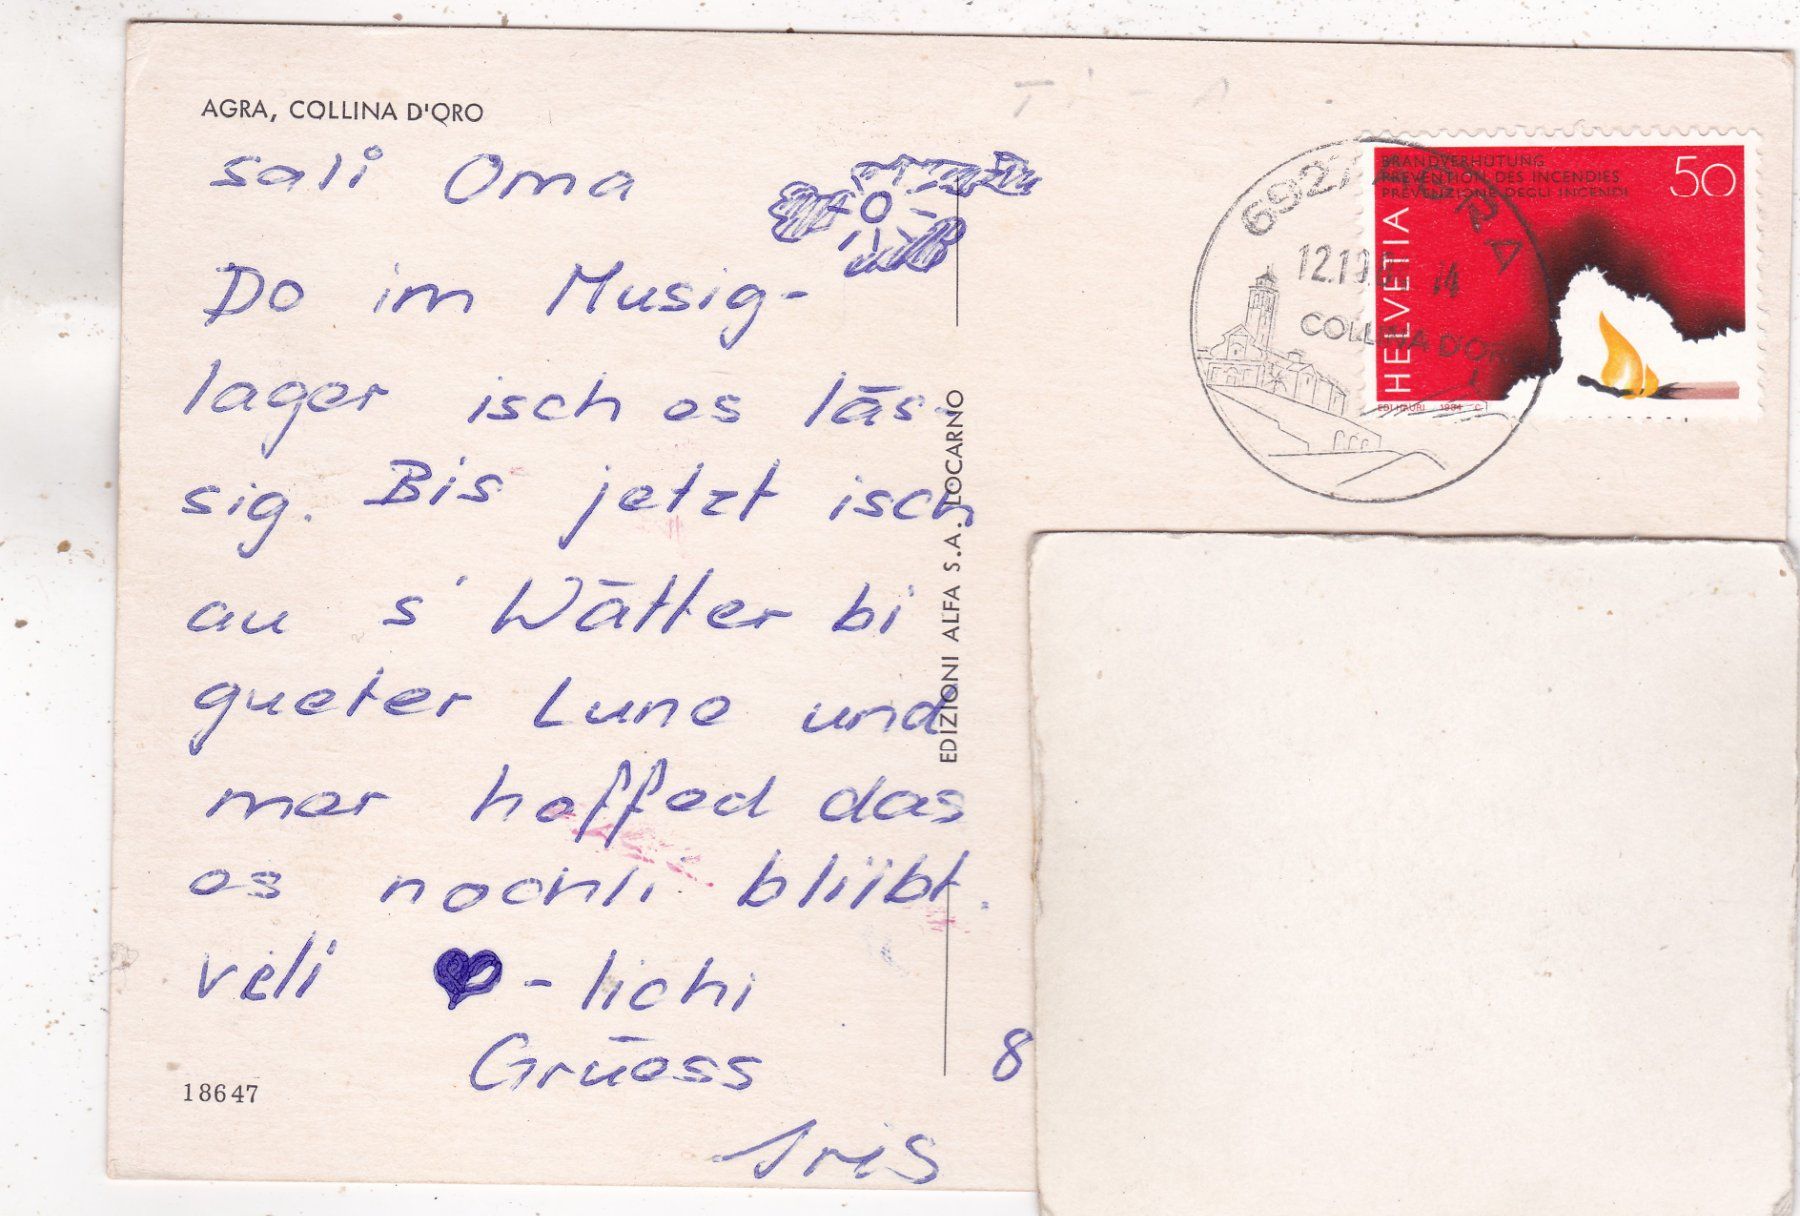 AGRA, COLLINA D'ORO
sali Oma
Do im Musig-
lager isch es läs-
sig. Bis jetzt isch
au s' Wätter bi
gueter Lune und
mer hoffed das
es nochli bliibt.
veli ♥-lichi
Grüess
Iris
18647
EDIZIONI ALFA S.A. LOCARNO
8
6927 AGRA
12.10.
14
COLLINA D'ORO
BRANDVERHÜTUNG
PRÉVENTION DES INCENDIES
PREVENZIONE DEGLI INCENDI
50
HELVETIA
EDI HAURI 1984 C